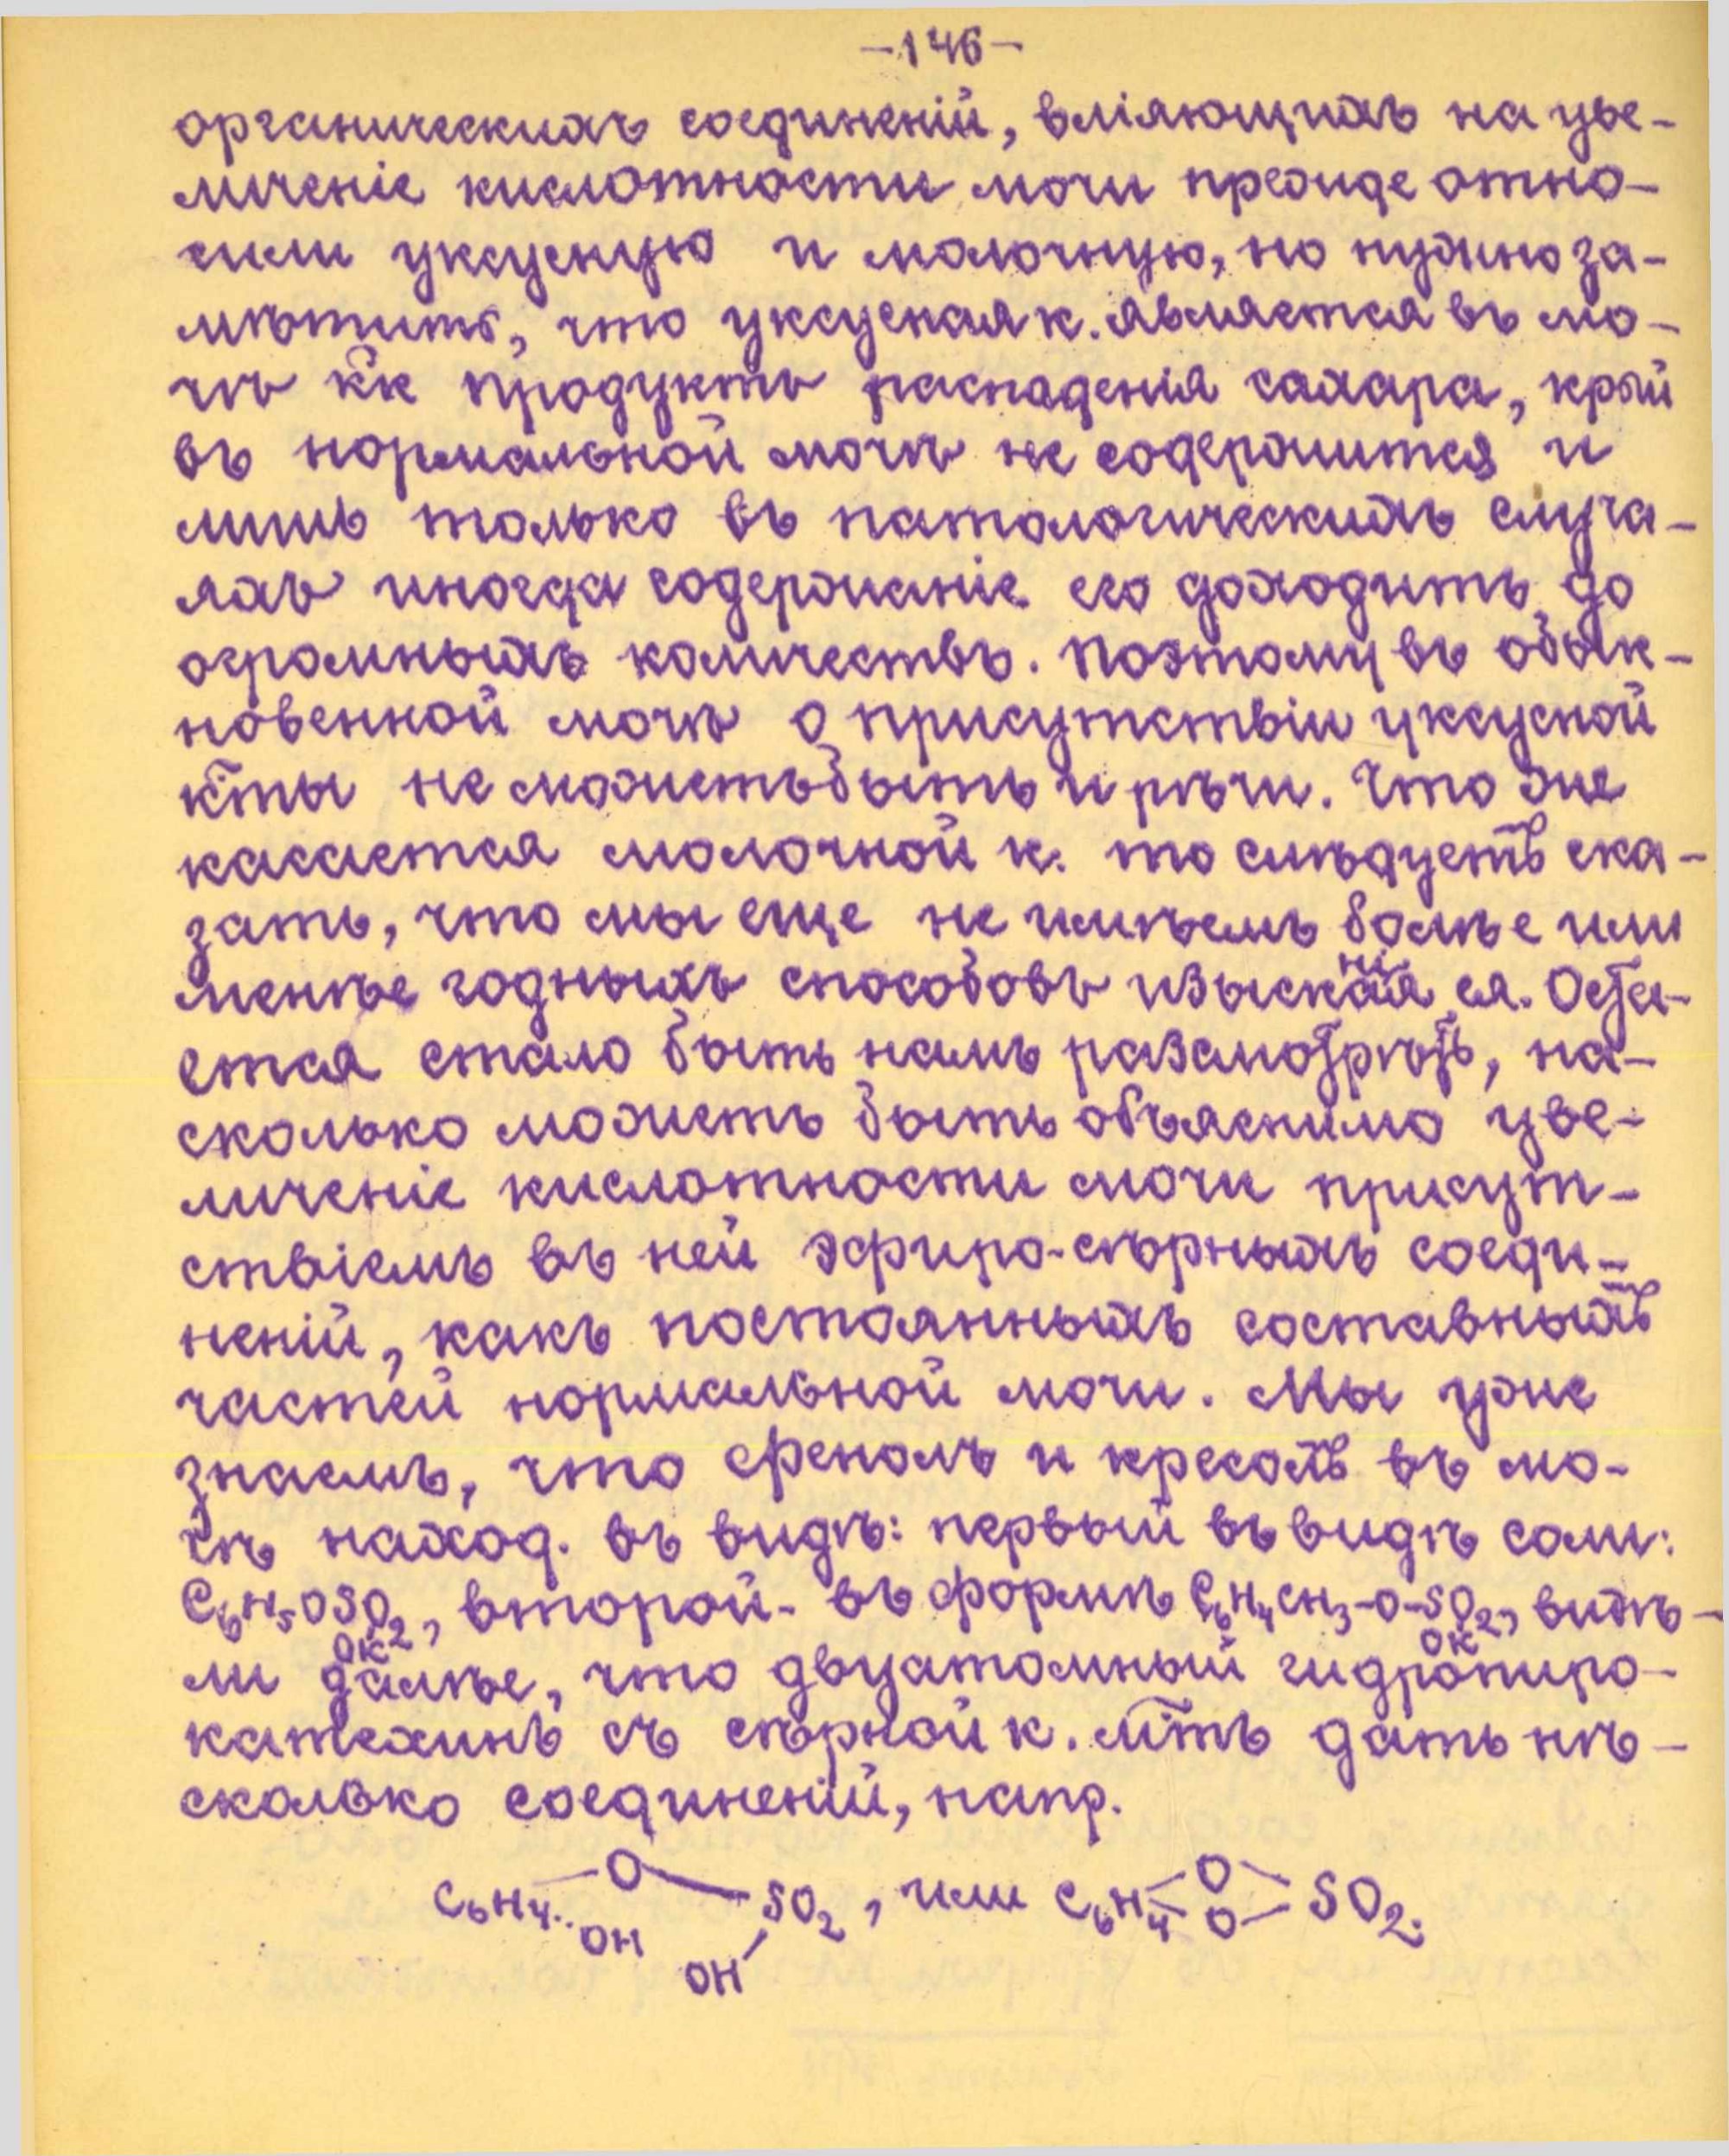 -146-
органическихъ соединеній, вліяющихъ на уве-
личеніе кислотности мочи прежде отно-
сили уксусную и молочную, но нужно за-
мѣтить, что уксусная к. является въ мо-
чѣ кк продуктъ распаденія сахара, крый
въ нормальной мочѣ не содержится и
лишь только въ патологическихъ случа-
яхъ иногда содержаніе его доходитъ до
огромныхъ количествъ. Поэтому въ обык-
новенной мочѣ о присутствіи уксусной
кты не можетъ быть и рѣчи. Что же
касается молочной к. то слѣдуетъ ска-
зать, что мы еще не имѣемъ болѣе или
менѣе годныхъ способовъ изысканія ея. Оста-
ется стало быть намъ разсмотрѣть, на-
сколько можетъ быть объяснимо уве-
личеніе кислотности мочи присут-
ствіемъ въ ней эфиро-сѣрныхъ соеди-
неній, какъ постоянныхъ составныхъ
частей нормальной мочи. Мы уже
знаемъ, что фенолъ и крезолъ въ мо-
чѣ наход. въ видѣ: первый въ видѣ соли:
C6H5OSO2OK, второй - въ формѣ C6H4CH3-O-SO2OK, видѣ-
ли далѣе, что двуатомный гидропиро-
катехинъ съ сѣрной к. мтъ дать нѣ-
сколько соединеній, напр.
C6H4 - O - SO2, или C6H4 = O O = SO2.
OH OH